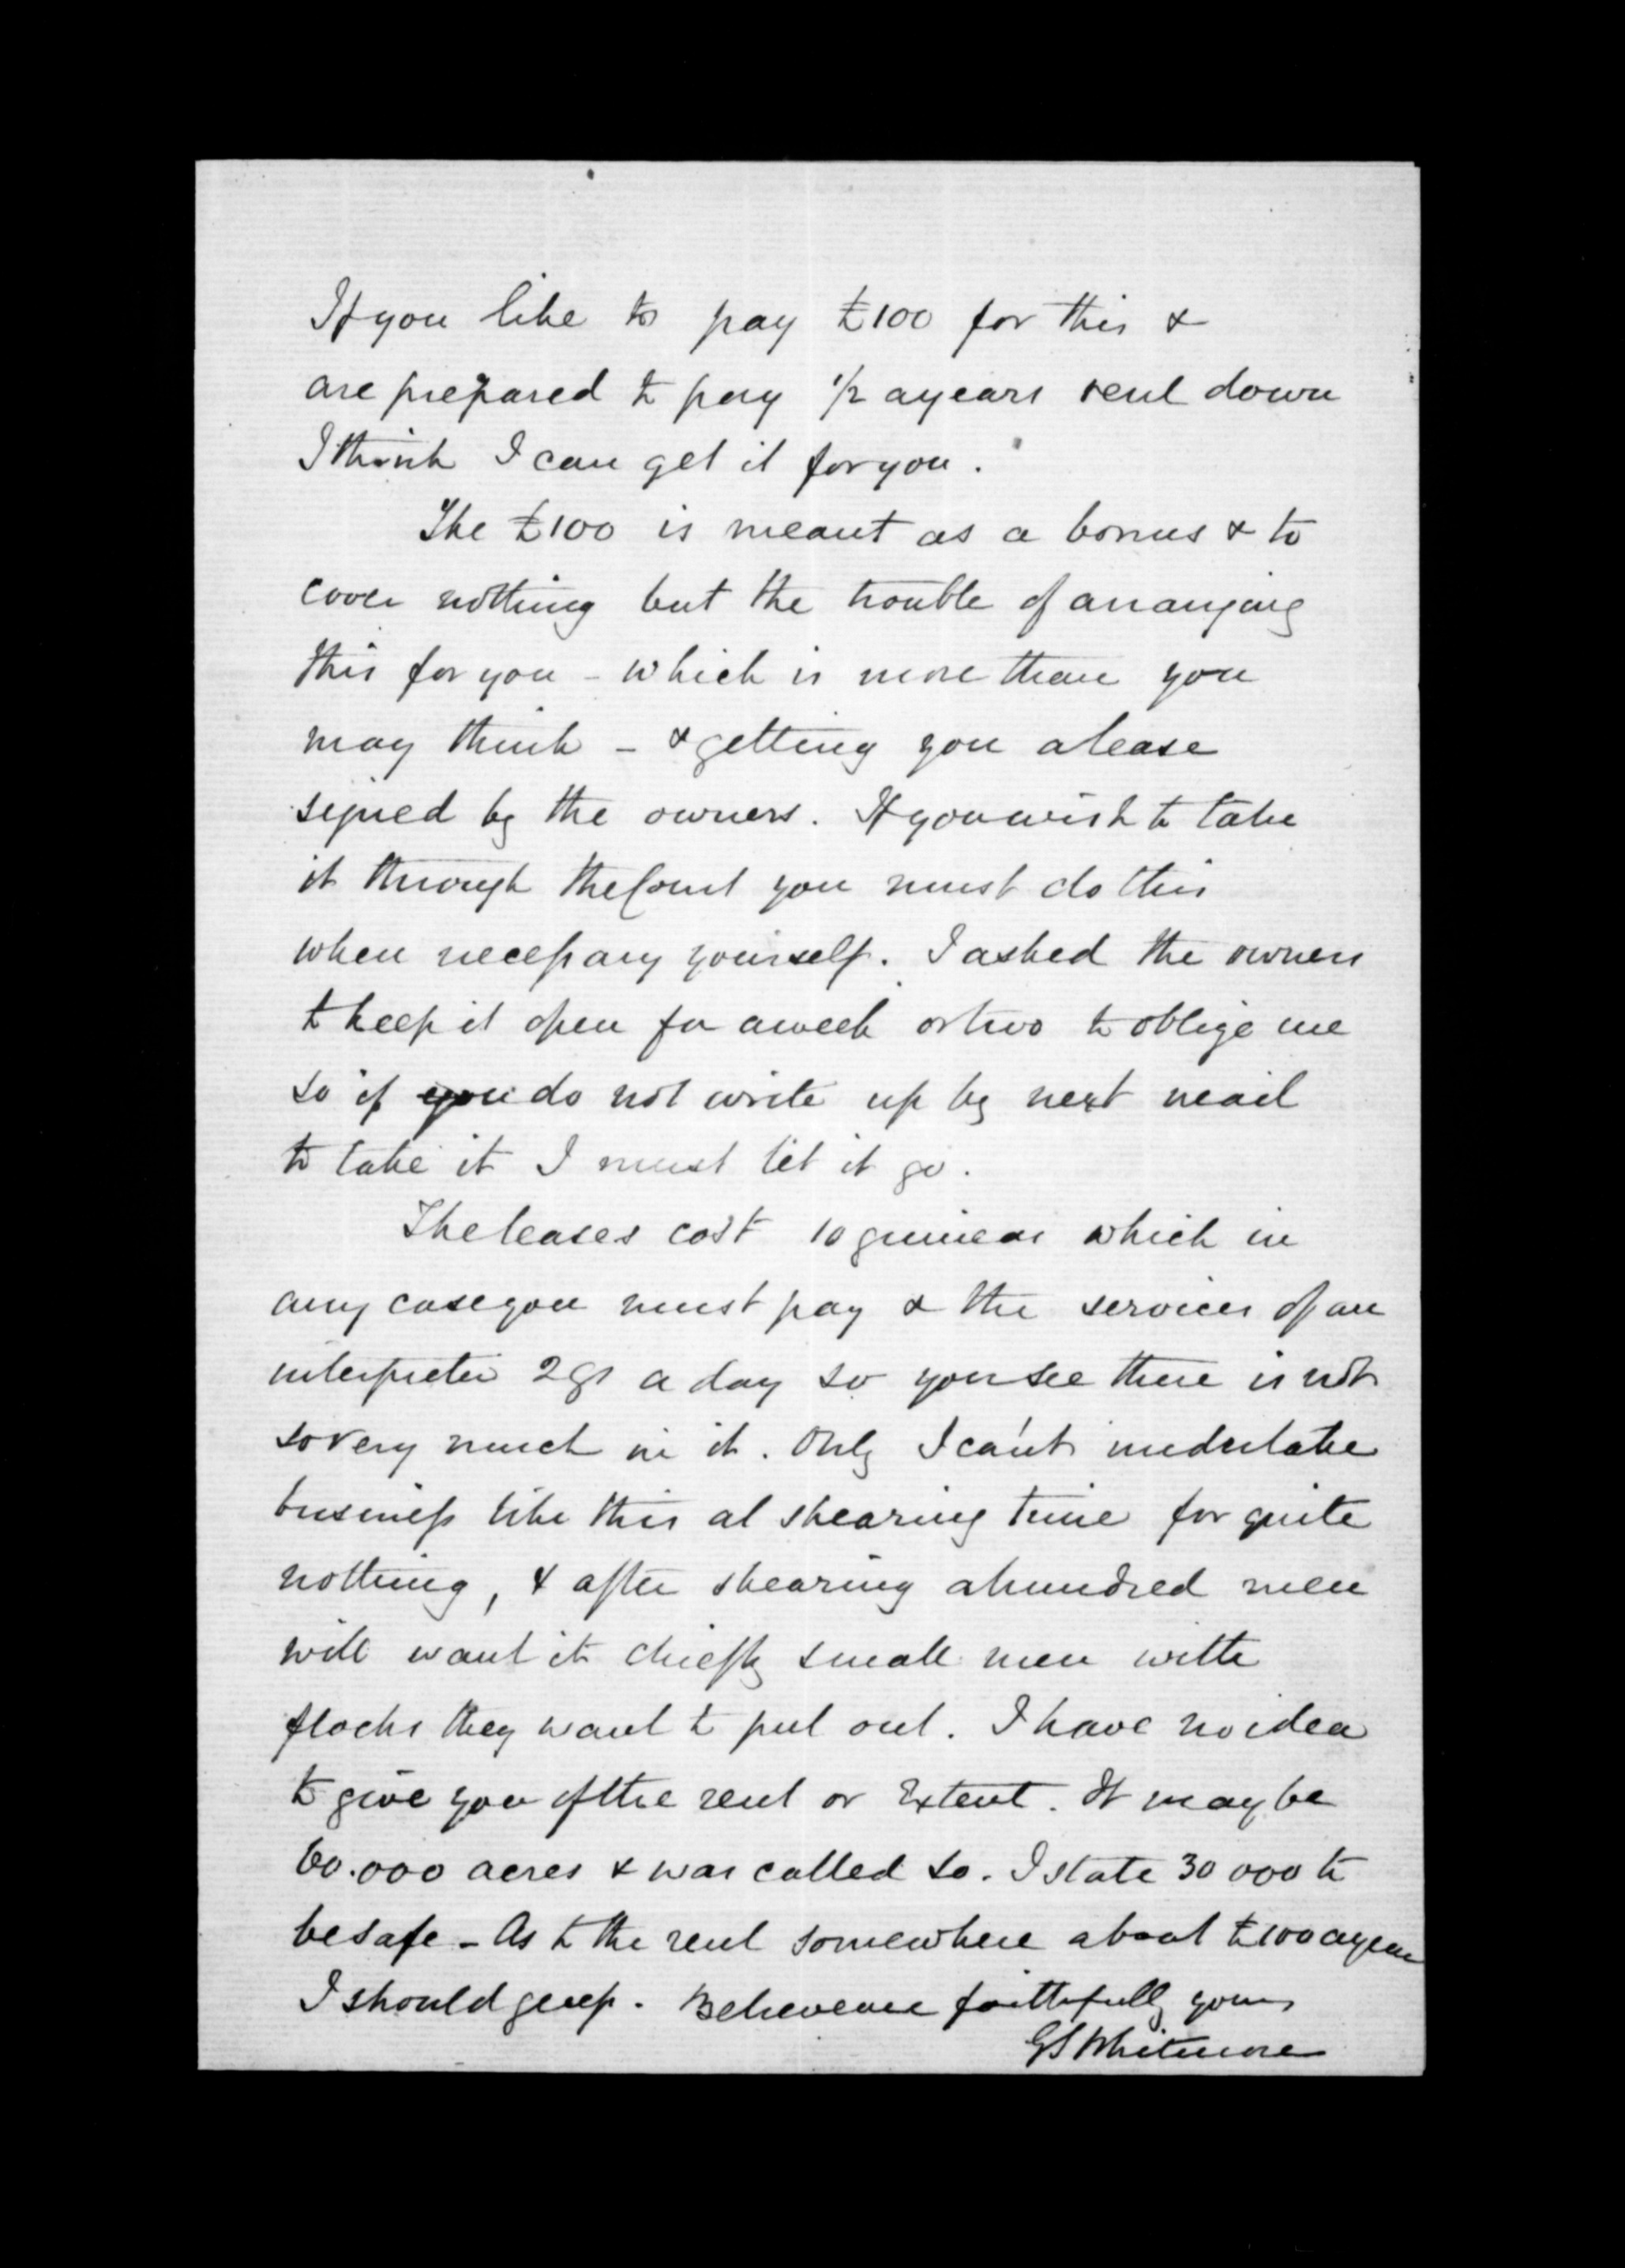 If you like to pay £100 for this &
are prepared to pay 1/2 a years rent down
I think I can get it for you.
The £100 is meant as a bonus & to
cover nothing but the trouble of arranging
this for you - which is more than you
may think - & getting you a lease
signed by the owners. If you wish to take
it through the Court you must do this
when necessary yourself. I asked the owners
to keep it open for a week or two to oblige me
so if you do not write up by next mail
to take it I must let it go.
The leases cost 10 guineas which in
any case you must pay & the services of an
interpreter 2gs a day so you see there is not
so very much in it. Only I can't undertake
business like this at shearing time for quite
nothing, & after shearing a hundred men
will want it chiefly small men with
flocks they want to put out. I have no idea
to give you of the rent or Extent. It may be
60.000 acres & was called so. I state 30 000 to
be safe - As to the rent somewhere about £100 a year
I should guess. Believe me faithfully yours
GS Whitmore